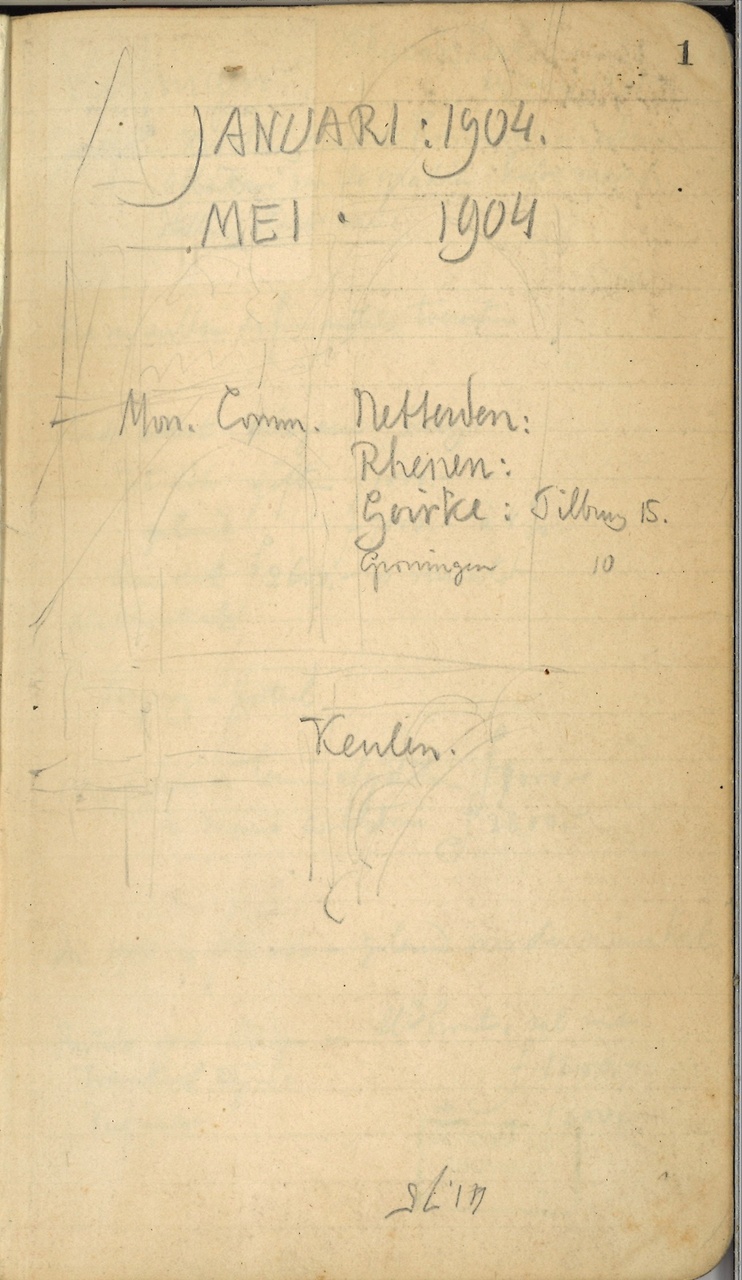 1
JANUARI : 1904.
MEI . 1904
Mon. Comm. Netterden:
Rhenen:
Goirke : Tilburg 15.
Groningen 10
Keulen.